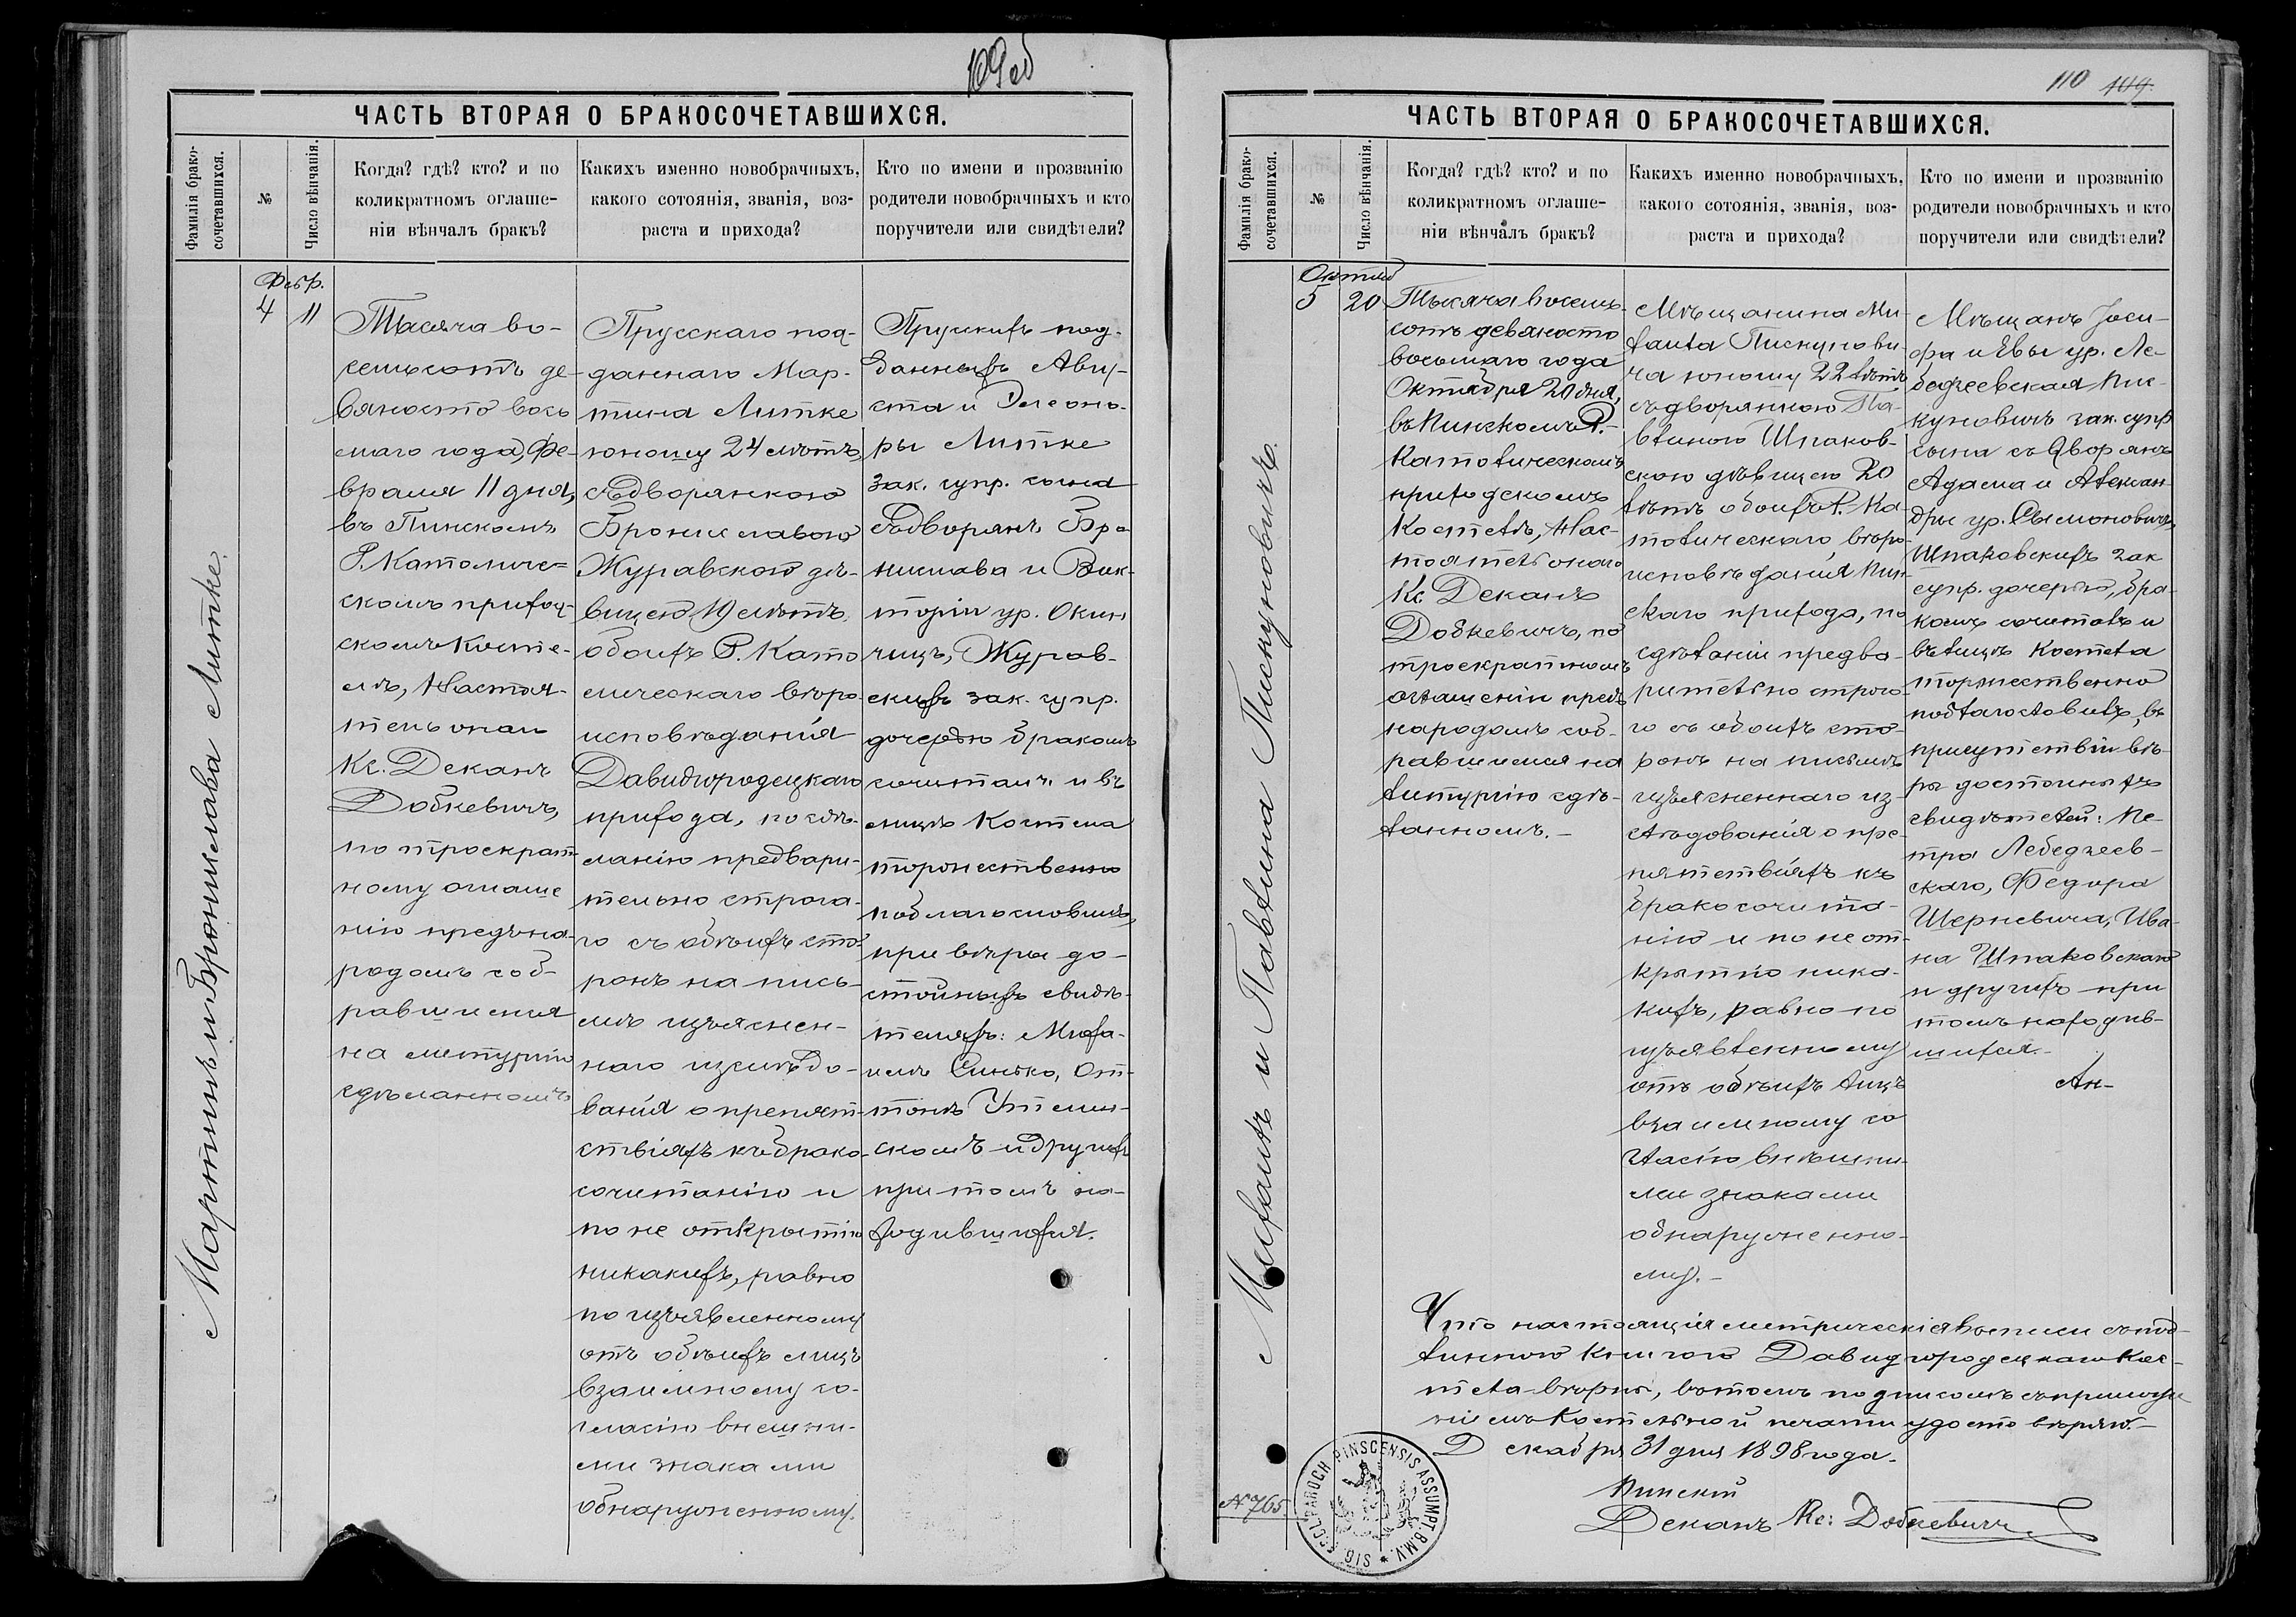 109об
ЧАСТЬ ВТОРАЯ О БРАКОСОЧЕТАВШИХСЯ.
Фамилія брако-
сочетавшихся.
№
Число вѣнчанія.
Когда? гдѣ? кто? и по
коликратномъ оглаше-
ніи вѣнчалъ бракъ?
Какихъ именно новобрачныхъ,
какого сотоянія, званія, воз-
раста и прихода?
Кто по имени и прозванію
родители новобрачныхъ и кто
поручители или свидѣтели?
Мартинъ и Бронислава Литке.
Февр.
4
11
Тысяча во-
семьсотъ де-
вяносто вось
маго года, Фе-
враля 11 дня,
въ Пинскомъ
Р. Католиче=
скомъ приход-
скомъ Косте-
лѣ, Настоя-
тель онаго
Кс. Деканъ
Добкевичъ,
по троекрат-
ному оглаше
нію предъ на-
родомъ соб-
равшимся
на литургію
сдѣланномъ
Прусскаго под-
даннаго Мар-
тина Литке
юношу 24 лѣтъ,
съ дворянкою
Брониславою
Журавской дѣ-
вицею 19 лѣтъ
обоихъ Р. Като
лическаго вѣро-
исповѣданія
Давидгородецкаго
прихода, по сдѣ-
ланію предвари-
тельно строга-
го съ обѣихъ сто-
ронъ на пись-
мѣ изъяснен-
наго изслѣдо-
ванія о препят-
ствіяхъ къ брако-
сочитанію и
по не открытію
никакихъ, равно
по изъявленному
отъ обѣихъ лицъ
взаимному со-
гласію внешни-
ми знаками
обнаруженному.
Прускихъ под-
данныхъ Авгу-
ста и Элеоно-
ры Литке
зак. супр. сына
съ дворянъ Бро
нислава и Вик-
торіи ур. Окин
чицъ, Журав-
скихъ зак. супр.
дочерью бракомъ
сочиталъ и въ
лицѣ Костела
торжественно
поблагословилъ,
при вѣры до-
стойныхъ свидѣ-
теляхъ: Миха-
илѣ Синько, Он-
тонѣ
скомъ и другихъ
при томъ на-
ходившихся.
110 109.
ЧАСТЬ ВТОРАЯ О БРАКОСОЧЕТАВШИХСЯ.
Фамилія брако-
сочетавшихся.
№
Число вѣнчанія.
Когда? гдѣ? кто? и по
коликратномъ оглаше-
ніи вѣнчалъ бракъ?
Какихъ именно новобрачныхъ,
какого сотоянія, званія, воз-
раста и прихода?
Кто по имени и прозванію
родители новобрачныхъ и кто
поручители или свидѣтели?
Михаилъ и Павлина Пискуновичъ.
Октяб
5
20
Тысяча восемь-
сотъ девяносто
восьмаго года
Октября 20 дня,
въ Пинскомъ Р.-
Католическомъ
приходскомъ
Костелѣ, Нас-
тоятель онаго
Кс. Деканъ
Добкевичъ, по
троекратномъ
оглашеніи предъ
народомъ соб-
равшимся на
литургію сдѣ-
ланномъ.-
Мѣщанина Ми-
хаила Пискунови-
ча юношу 22 лѣтъ
съ дворянкою Па-
влиною Шпаков-
скою дѣвицею 20
лѣтъ обоихъ Р. Ка-
толическаго вѣро-
исповѣданія Пин-
скаго прихода, по
сдѣланіи предва-
рительно строга-
го съ обоихъ сто-
ронъ на письмѣ
изъясненнаго из-
слѣдованія о пре-
пятствіяхъ къ
бракосочита-
нію и по не от-
крытію ника-
кихъ, равно по
изъявленному
отъ обѣихъ лицъ
взаимному со
гласію внѣшни-
ми знаками
обнаруженно-
му.-
Мѣщанъ Іоси-
фа и Евы ур. Ле-
бедзеевская Пис-
куновичъ зак. супр
сына съ Дворянъ
Адама и Алексан-
дры ур. Сымоновичъ,
Шпаковскихъ зак
супр. дочерью, бра-
комъ сочиталъ и
въ лицѣ Костела
торжественно
поблагословилъ, въ
присутствіи вѣ-
ры достойныхъ
свидѣтелей: Пе-
тра Лебедзеев-
скаго, Федора
Шерневича, Ива-
на Шпаковскаго
и другихъ при
томъ находив-
шихся.-
Ан-
Что настоящія метрическія выписи съ под-
линною книгою Давидгородецкаго Кос-
тела вѣрны, въ томъ подписомъ съ приложе
ніемъ Костельной печати удостовѣряю.-
Декабря 31 дня 1898 года.
Пинскій
Деканъ Кс: Добкевичъ
№ 765.
SIG. ECCL. PAROCH PINSCENSIS ASSUMPT. B.M.V. *